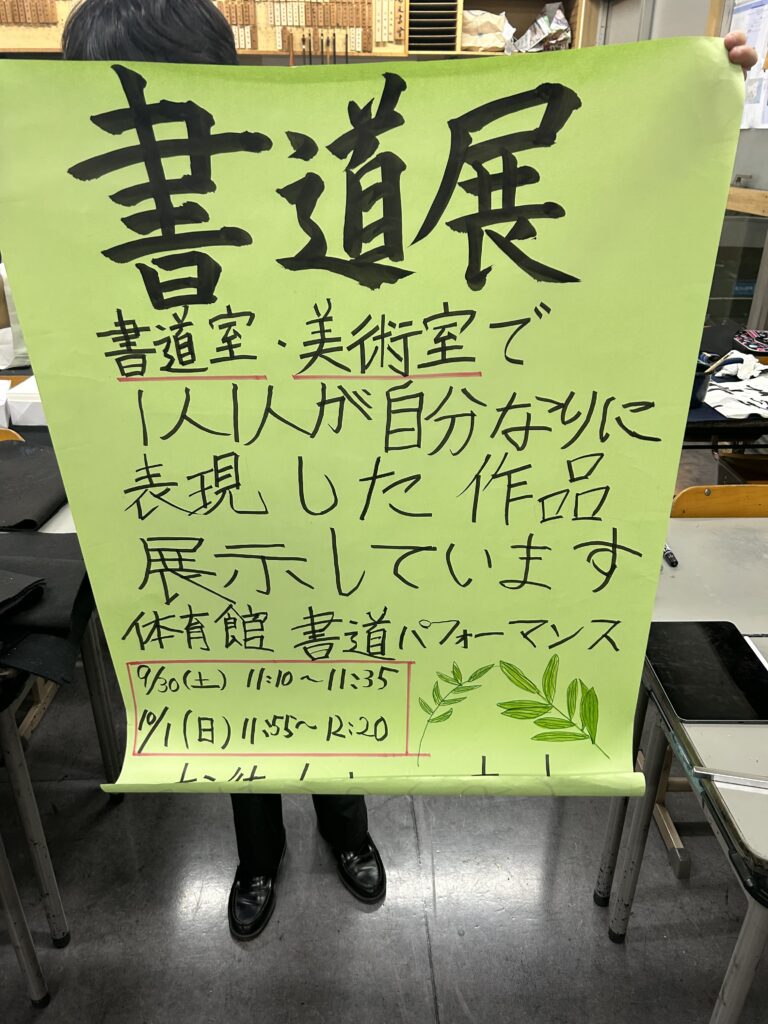 書道展
書道室・美術室で
1人1人が自分なりに
表現した作品
展示しています
体育館 書道パフォーマンス
9/30(土) 11:10〜11:35
10/1(日) 11:55〜12:20